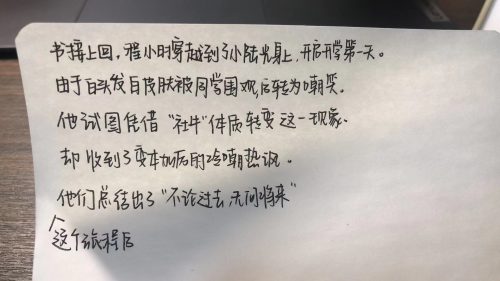 书接上回，程小时穿越到了小陆光身上，开启开学第一天。
由于白头发白皮肤被同学围观，后转为嘲笑。
他试图凭借“社牛”体质转变这一现象。
却收到了变本加厉的冷嘲热讽。
他们总结出了“不论过去，无问将来”
这个旅程后